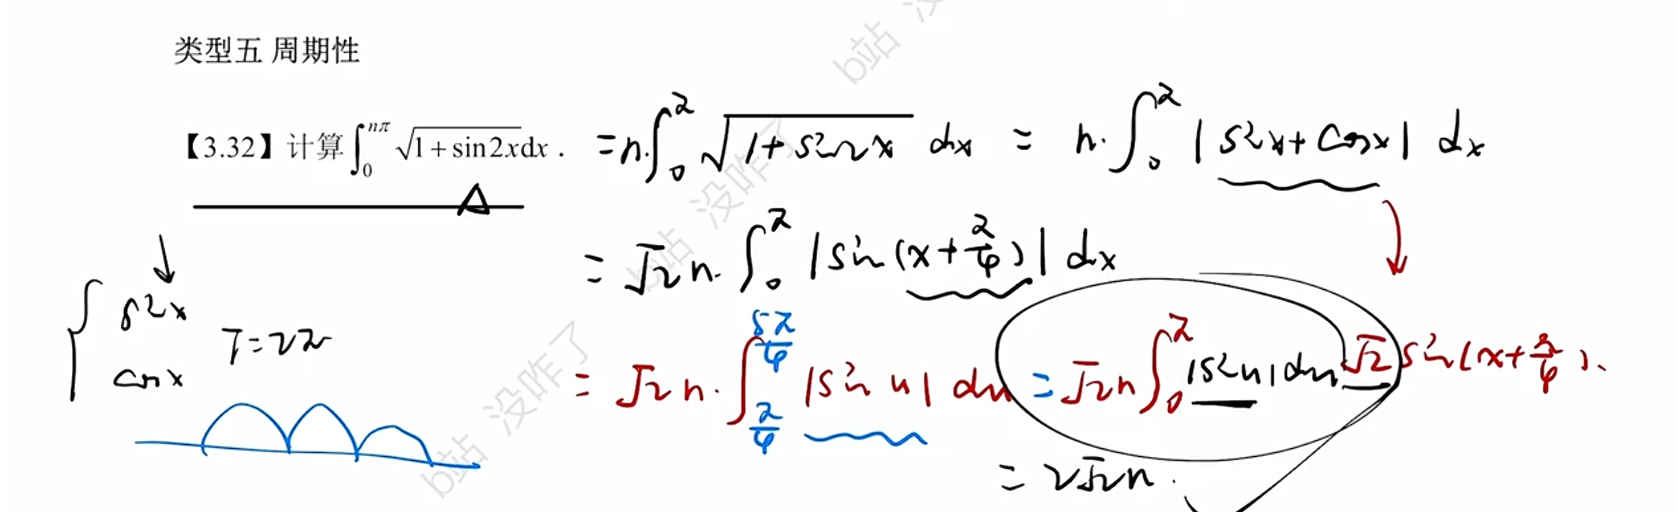 类型五 周期性
【3.32】计算∫₀^{nπ} √(1+sin2x)dx. =n·∫₀^π √(1+sin2x) dx = n·∫₀^π |sinx+cosx| dx
= √2 n·∫₀^π |sin(x+π/4)| dx
{ sinx
cosx
T=2π
= √2 n·∫_{π/4}^{5π/4} |sin u| du = √2 n∫₀^π |sinu|du
√2 sin(x+π/4).
= 2√2 n.
b站 没咋了
b站 没咋了
b站 没咋了